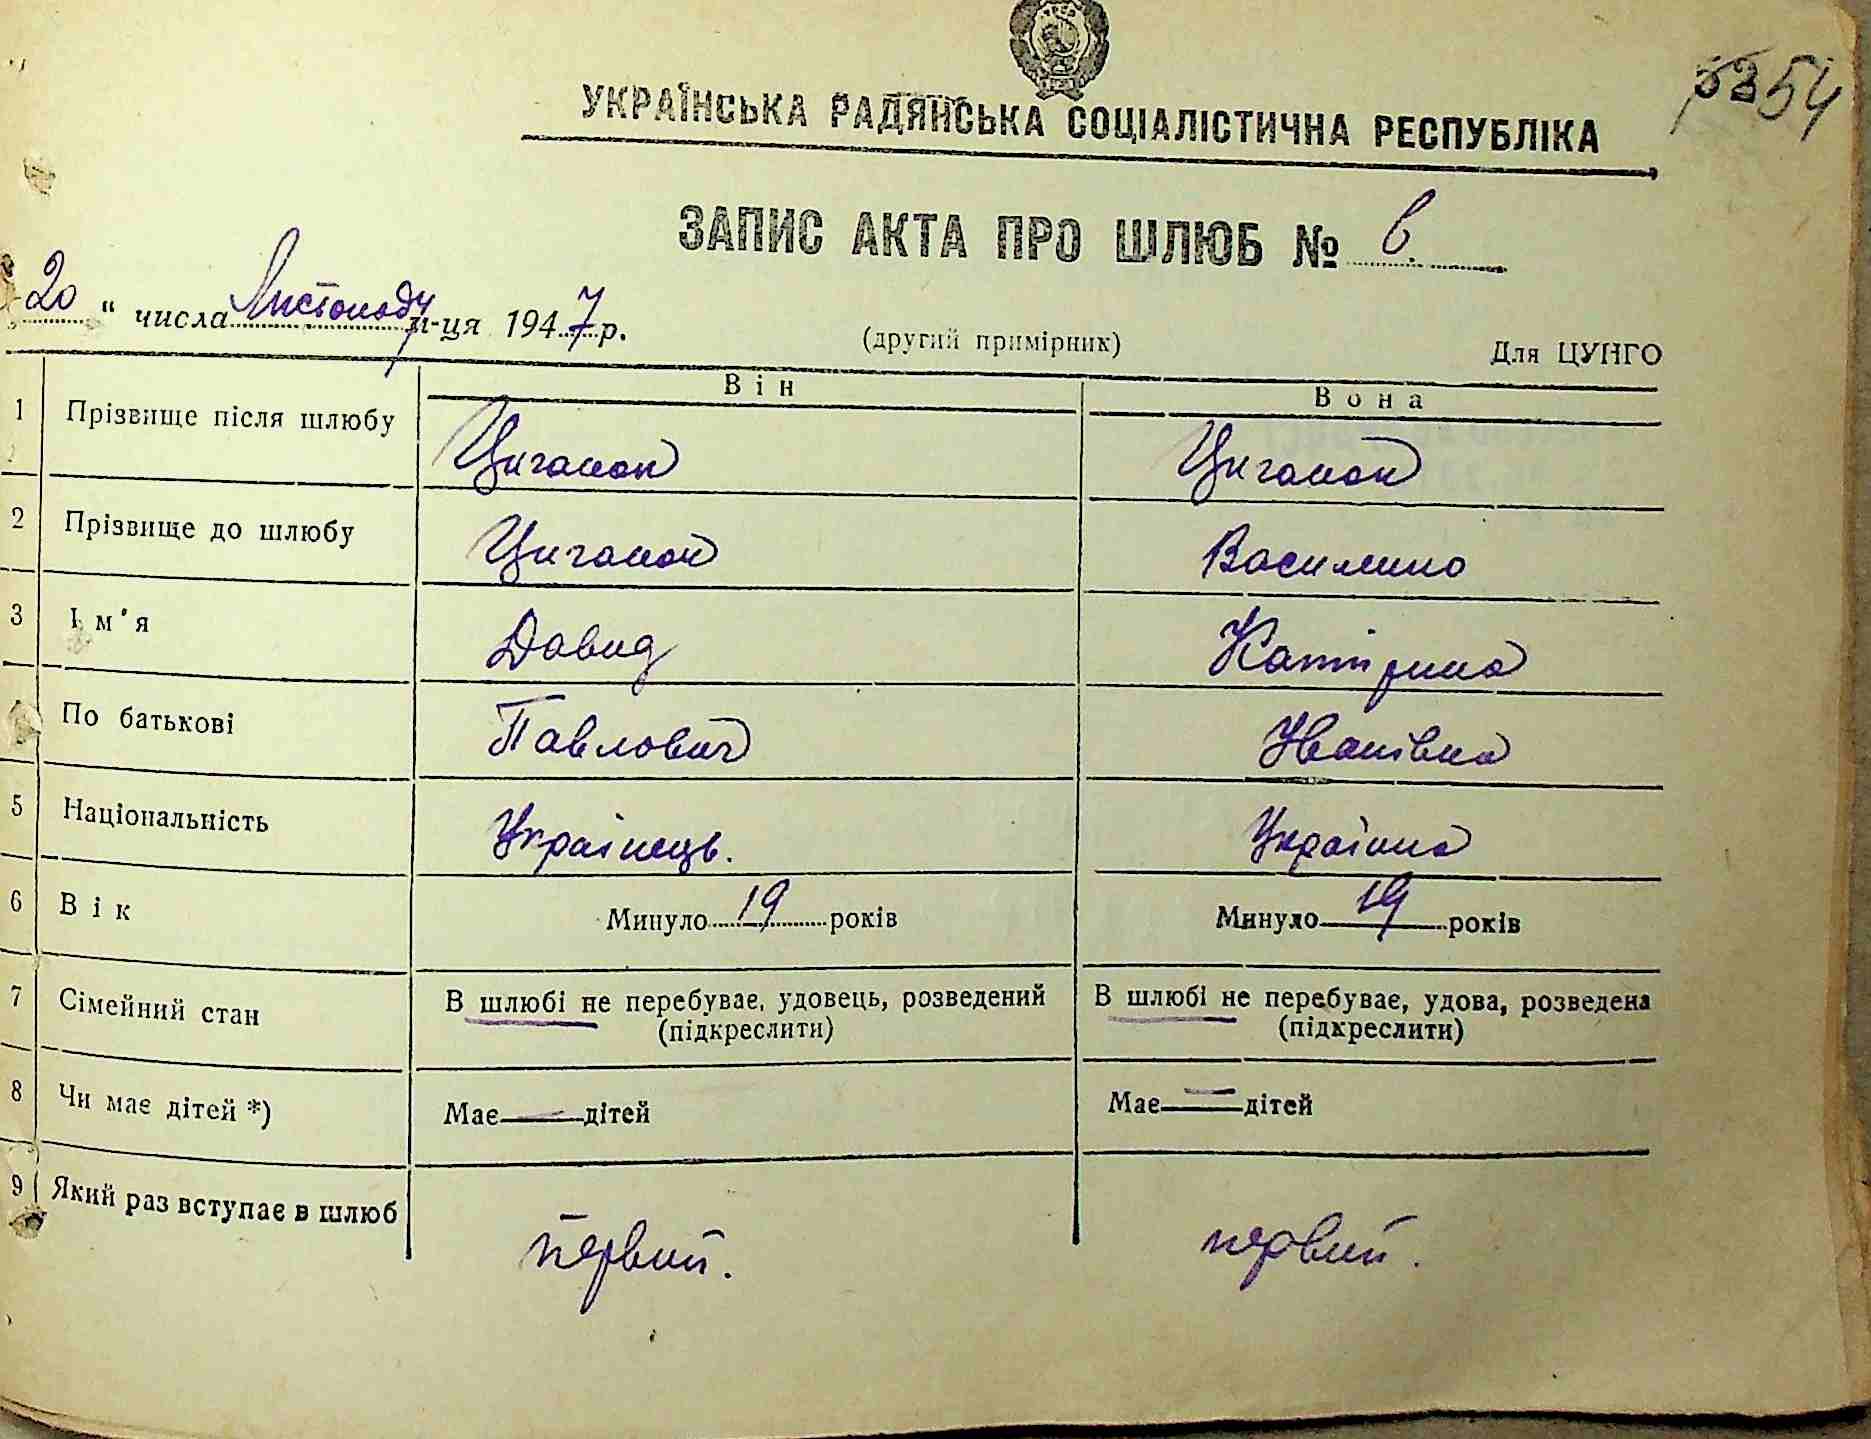 УКРАЇНСЬКА РАДЯНСЬКА СОЦІАЛІСТИЧНА РЕСПУБЛІКА
ЗАПИС АКТА ПРО ШЛЮБ № 6.
20 " числа Листопаду м-ця 1947 р.
(другий примірник) Для ЦУНГО
Він Вона
1 Прізвище після шлюбу Циганок Циганок
2 Прізвище до шлюбу Циганок
3 Ім'я Давид Катірина
По батькові Павлович Иванівна
5 Національність Українець. Украінка
6 Вік Минуло 19 років Минуло 19 років
7 Сімейний стан В шлюбі не перебуває, удовець, розведений В шлюбі не перебуває, удова, розведена
(підкреслити) (підкреслити)
8 Чи має дітей *) Має — дітей Має — дітей
9 Який раз вступає в шлюб первий. первий.